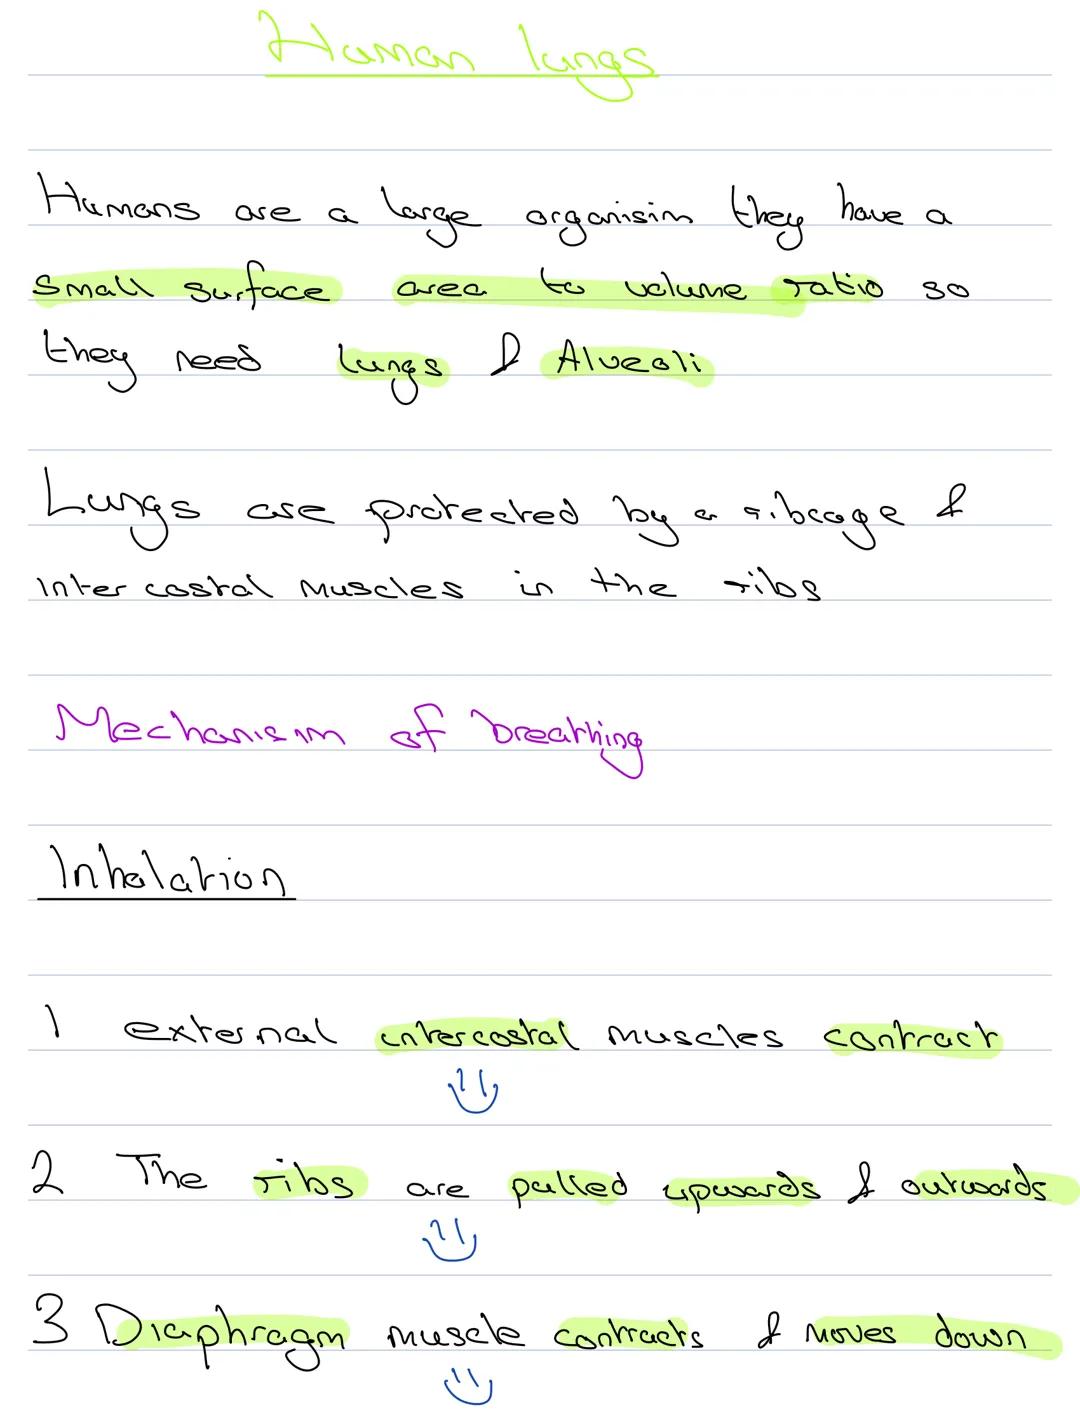 Human lungs
Humans are a large organisim they have a
small surface area to volume ratio so
they need lungs & Alveoli
Lungs are protected by a ribcage &
intercostal muscles in the ribs
Mechanism of breathing
Inhalation
1 external intercostal muscles contract
2 The ribs are pulled upwards & outwards
3 Diaphragm muscle contracts & moves down